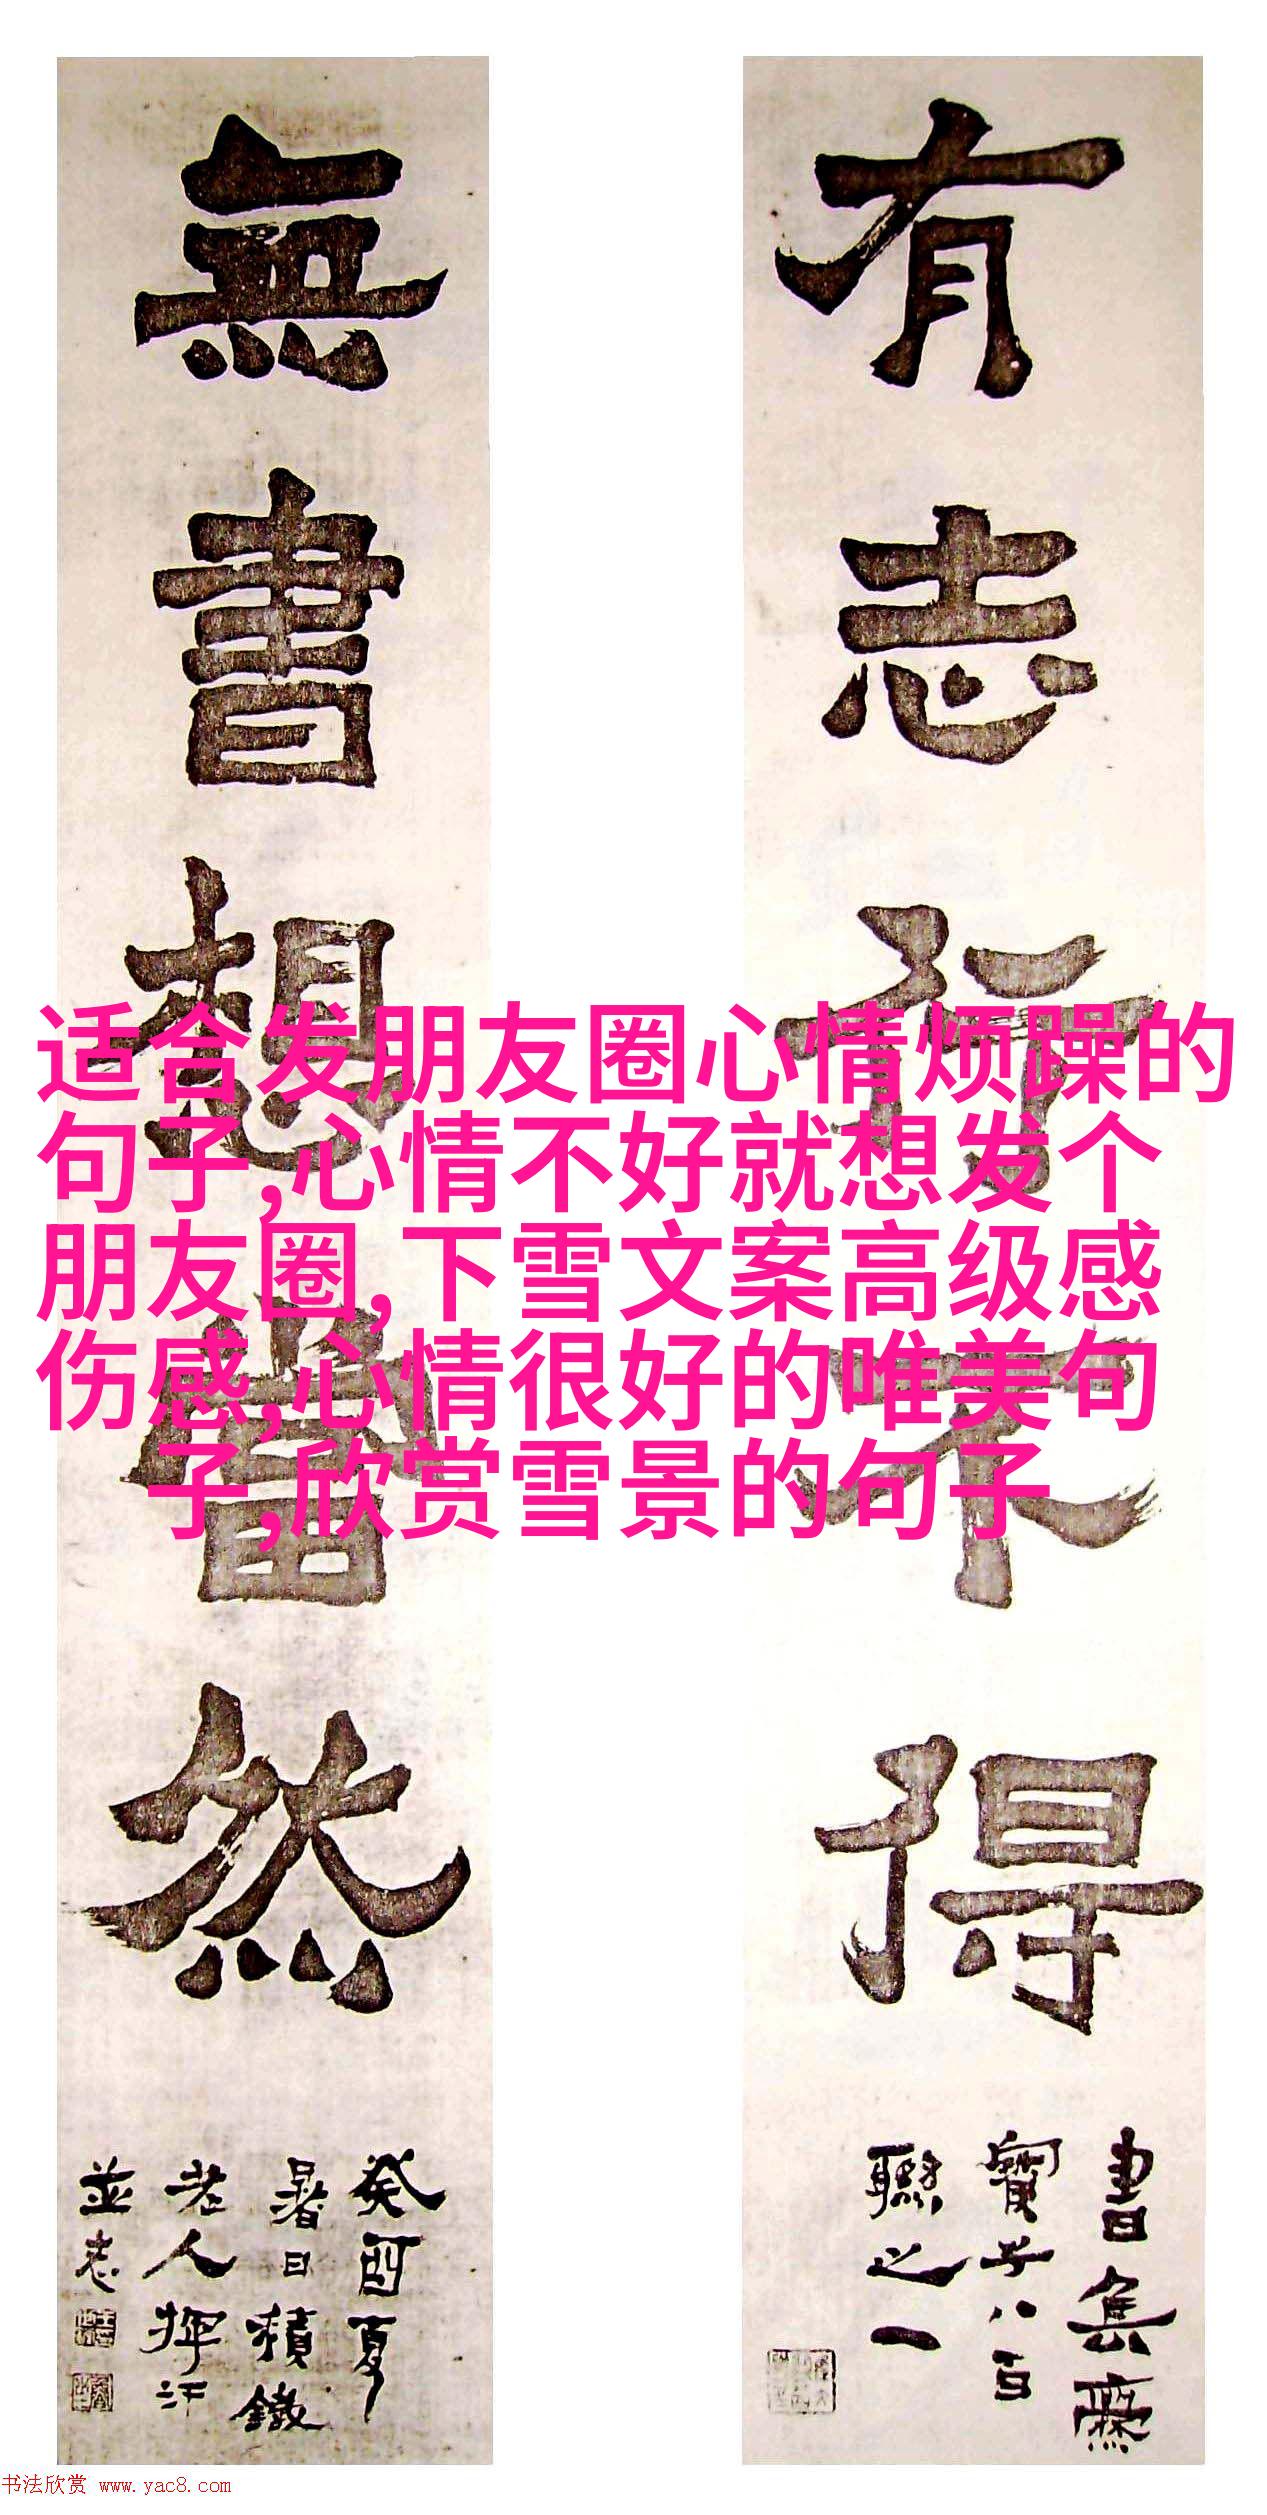 有志行不得
書集齋
寶子八百
聯之一
無書想當然
癸酉夏
暑日積鐵
老人揮汗
並志
适合发朋友圈心情烦躁的
句子,心情不好就想发个
朋友圈,下雪文案高级感
伤感,心情很好的唯美句
子,欣赏雪景的句子
书法欣赏 www.yac8.com